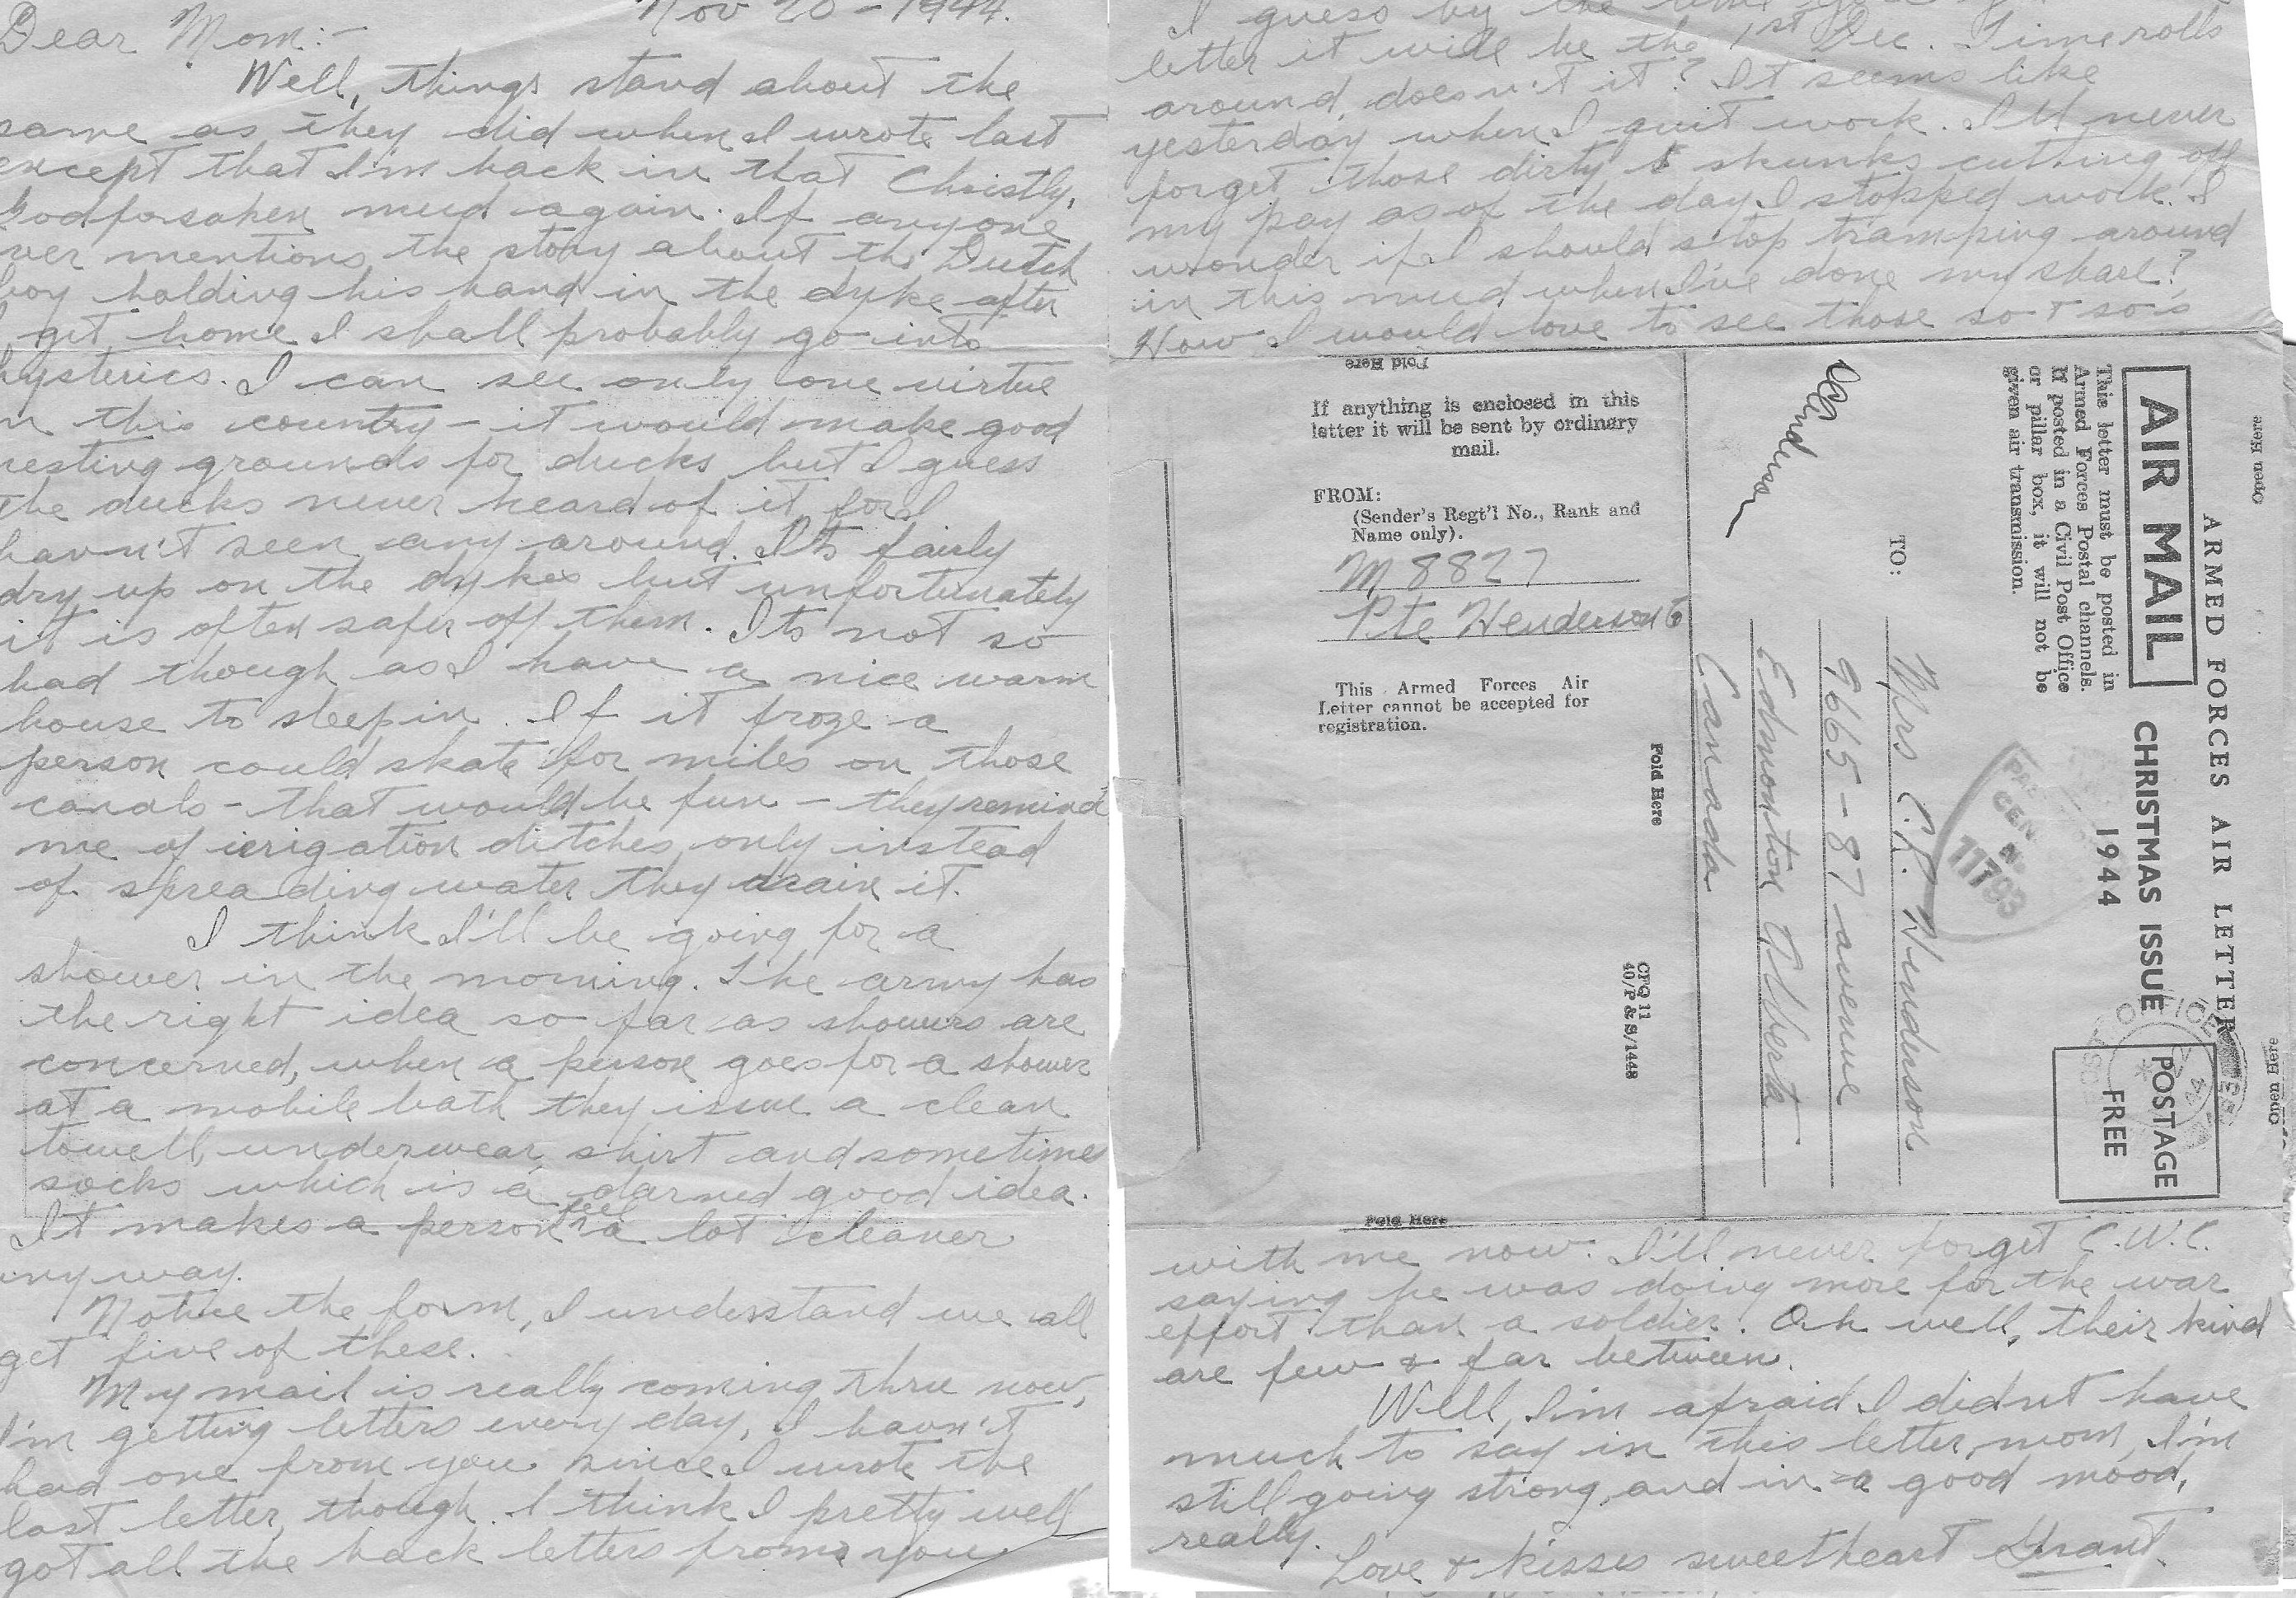 Nov 20 - 1944.
Dear Mom:-
Well, things stand about the
same as they did when I wrote last
except that I'm back in that Christly,
Godforsaken mud again. If anyone
ver mentions the story about the Dutch
boy holding his hand in the dyke after
I get home I shall probably go into
hysterics. I can see only one virtue
n this country - it would make good
nesting grounds for ducks but I guess
the ducks never heard of it, for I
havn't seen any around. Its fairly
dry up on the dykes but unfortunately
it is often safer off them. Its not so
bad though as I have a nice warm
house to sleep in. If it froze a
person could skate for miles on those
canals - that would be fun - they remind
me of irrigation ditches, only instead
of spreading water they drain it.
I think I'll be going for a
shower in the morning. The army has
the right idea so far as showers are
concerned, when a person goes for a shower
at a mobile bath they issue a clean
towell, underwear, shirt and sometimes
socks which is a darned good idea.
It makes a person feel a lot cleaner
anyway.
Notice the form, I understand we all
get five of these.
My mail is really coming thru now,
I'm getting letters every day, I havn't
had one from you since I wrote the
last letter, though. I think I pretty well
got all the back letters from you
I guess by the time you
letter it will be the 1st Dec. Time rolls
around, doesn't it? It seems like
yesterday when I quit work. I'll never
forget those dirty skunks cutting off
my pay as of the day I stopped work. I
wonder if I should stop tramping around
in this mud when I've done my share?
How I would love to see those so & so's
Fold Here
If anything is enclosed in this
letter it will be sent by ordinary
mail.
FROM:
(Sender's Regt'l No., Rank and
Name only).
M 8827
Pte Henderson G
This Armed Forces Air
Letter cannot be accepted for
registration.
Fold Here
CFQ 11
40/P & S/1448
Open Here
ARMED FORCES AIR LETTER
AIR MAIL
CHRISTMAS ISSUE
1944
This letter must be posted in
Armed Forces Postal channels.
If posted in a Civil Post Office
or pillar box, it will not be
given air transmission.
POSTAGE
FREE
Open Here
11793
TO:
Mrs C.R. Henderson
9665 - 87 avenue
Edmonton Alberta
Canada
Fold Here
with me now. I'll never forget C.W.C.
saying he was doing more for the war
effort than a soldier. Oh well, their kind
are few & far between.
Well, I'm afraid I didnt have
much to say in this letter, mom, I'm
still going strong, and in a good mood,
really.
Love & kisses sweetheart Grant.